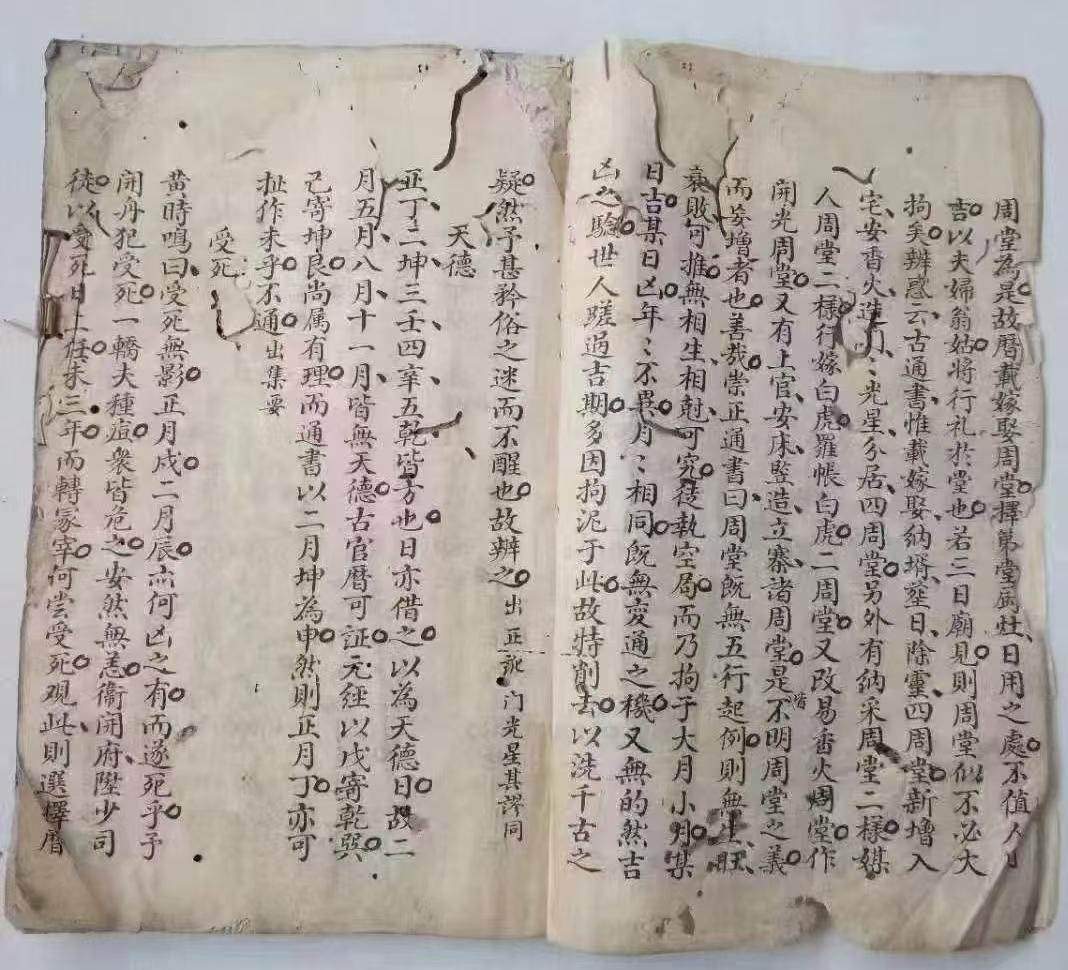 周堂為是故曆載嫁娶周堂擇第堂厨灶日用之處不值人
吉以夫婦翁姑將行礼於堂也若三日廟見則周堂似不必大
拘矣辨惑云古通書惟載嫁娶納壻𦵏日除靈四周堂新增入
宅安香火造門門光星分居四周堂另外有納采周堂二樣媒
人周堂二樣行嫁白虎羅帳白虎二周堂又改易香火周堂作
開光周堂又有上官安床竪造立寨諸周堂是皆不明周堂之義
而妄增者也善哉崇正通書曰周堂旣無五行起例則無生旺
衰敗何推無相生相尅可究徒執空局而乃拘于大月小月某
日吉某日凶年〻不異月〻相同旣無变通之機又無的然吉
凶之驗世人蹉過吉期多因拘泥于此故特削去以洗千古之
疑然予甚矜俗之迷而不醒也故辨之出正訛門光星其謬同
天德
正丁二坤三壬四辛五乾皆方也日亦借之以為天德日故二
月五月八月十一月皆無天德古官曆可証元經以戌寄乾巽
己寄坤艮尚属有理而通書以二月坤為申然則正月丁亦可
扯作未乎不通出集要
受死
黄時鳴曰受死無影正月戌二月辰亦何凶之有而遂死乎予
開舟犯受死一轎夫種痘衆皆危之安然無恙衞開府陞少司
徒以受死日上任未三年而轉冡宰何尝受死观此則選擇曆